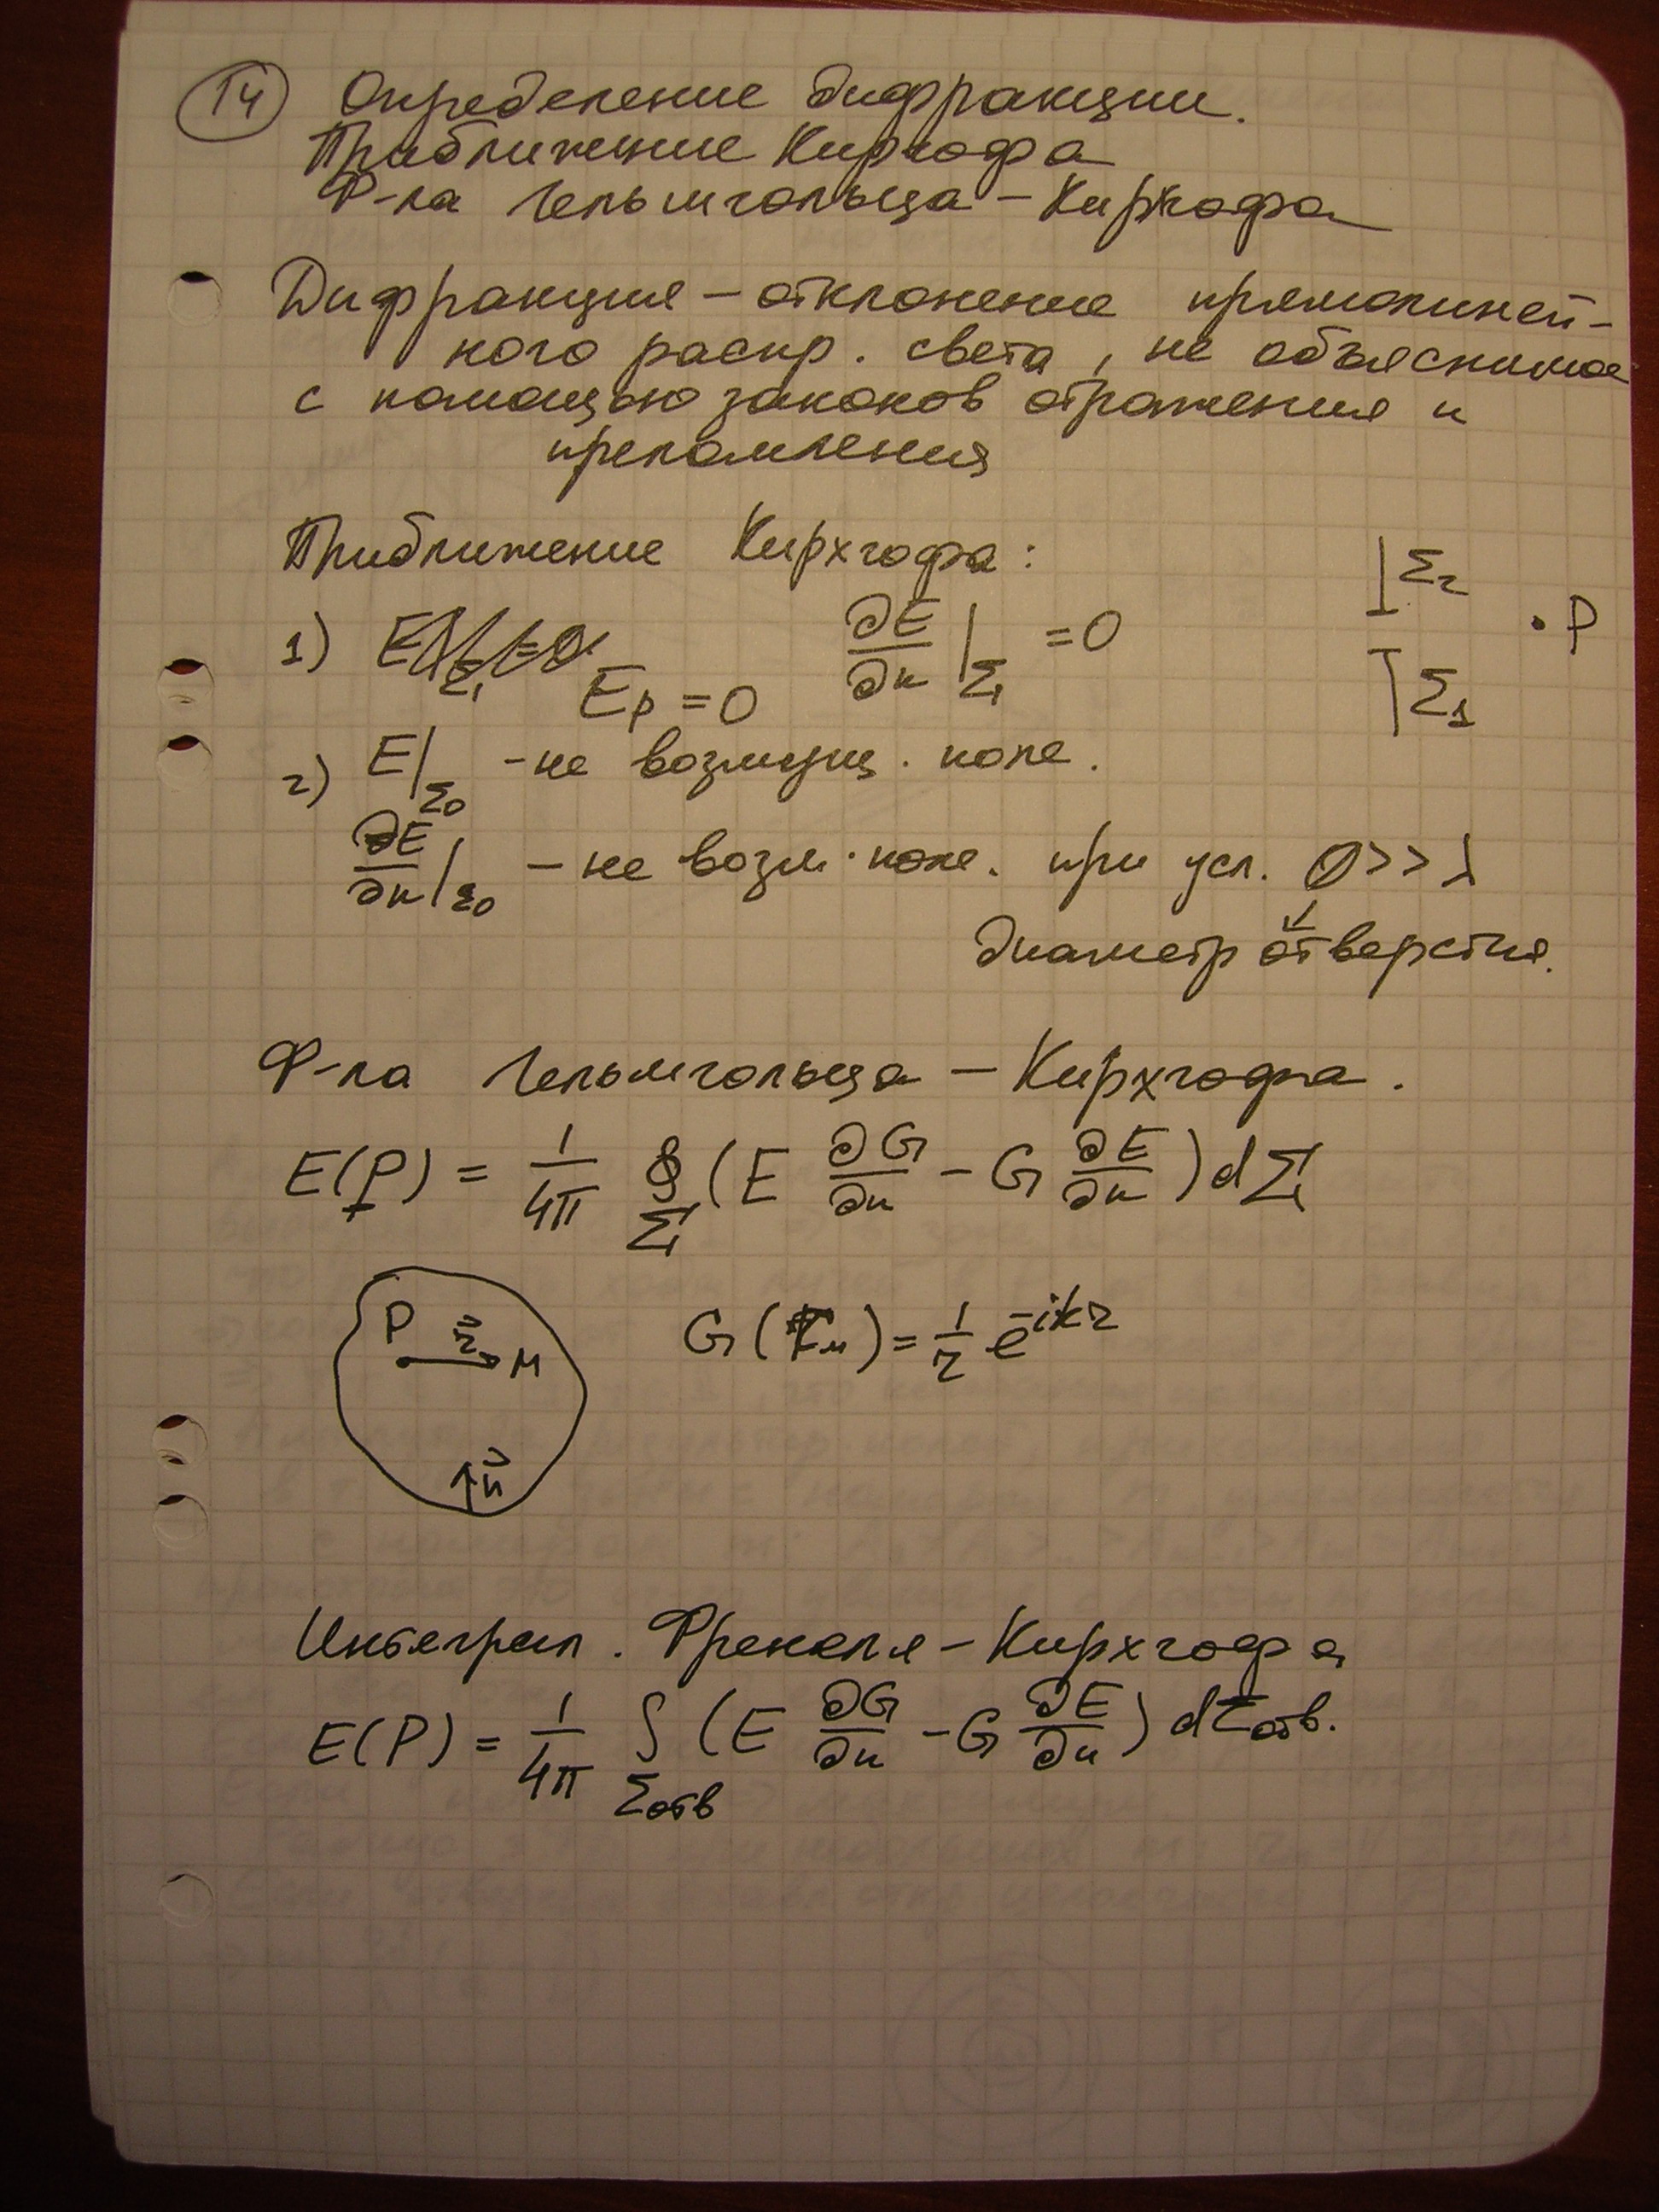 14 Определение дифракции.
Приближение Кирхгофа
Ф-ла Гельмгольца – Кирхгофа
Дифракция – отклонение прямолиней-
ного распр. света, не объяснимое
с помощью законов отражения и
преломления
Приближение Кирхгофа:
1) E_P = 0 ∂E/∂n|_Σ = 0
Σ₂
. P
Σ₁
2) E|_Σ₀ - не возмущ. поле.
∂E/∂n|_Σ₀ – не возм. поле. при усл. D >> λ
диаметр отверстия.
Ф-ла Гельмгольца – Кирхгофа.
E(P) = 1/4π ∮_Σ (E ∂G/∂n – G ∂E/∂n) dΣ
P r⃗ M
n⃗
G(r_м) = 1/r e^{-ikr}
Интеграл. Френеля – Кирхгофа
E(P) = 1/4π ∫_Σотв (E ∂G/∂n – G ∂E/∂n) dΣотв.